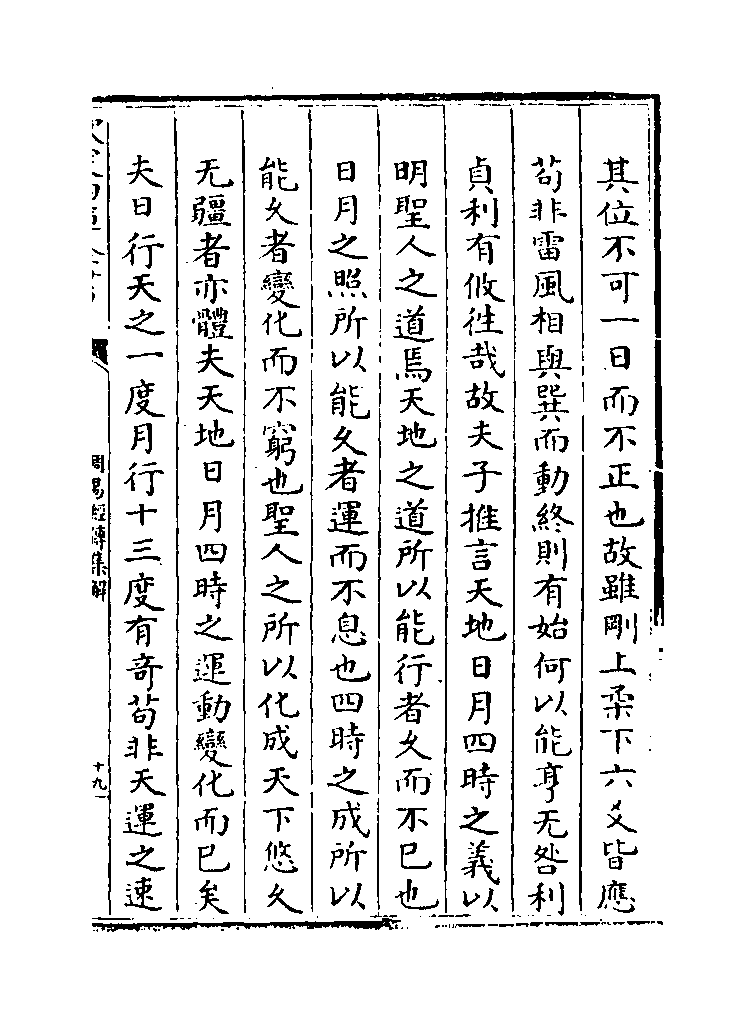 其位不可一日而不正也故雖剛上柔下六爻皆應
茍非雷風相與巽而動終則有始何以能亨无咎利
貞利有攸往哉故夫子推言天地日月四時之義以
明聖人之道焉天地之道所以能行者久而不已也
日月之照所以能久者運而不息也四時之成所以
能久者變化而不窮也聖人之所以化成天下悠久
无疆者亦體夫天地日月四時之運動變化而已矣
夫日行天之一度月行十三度有竒茍非天運之速
周易經傳集解
十九